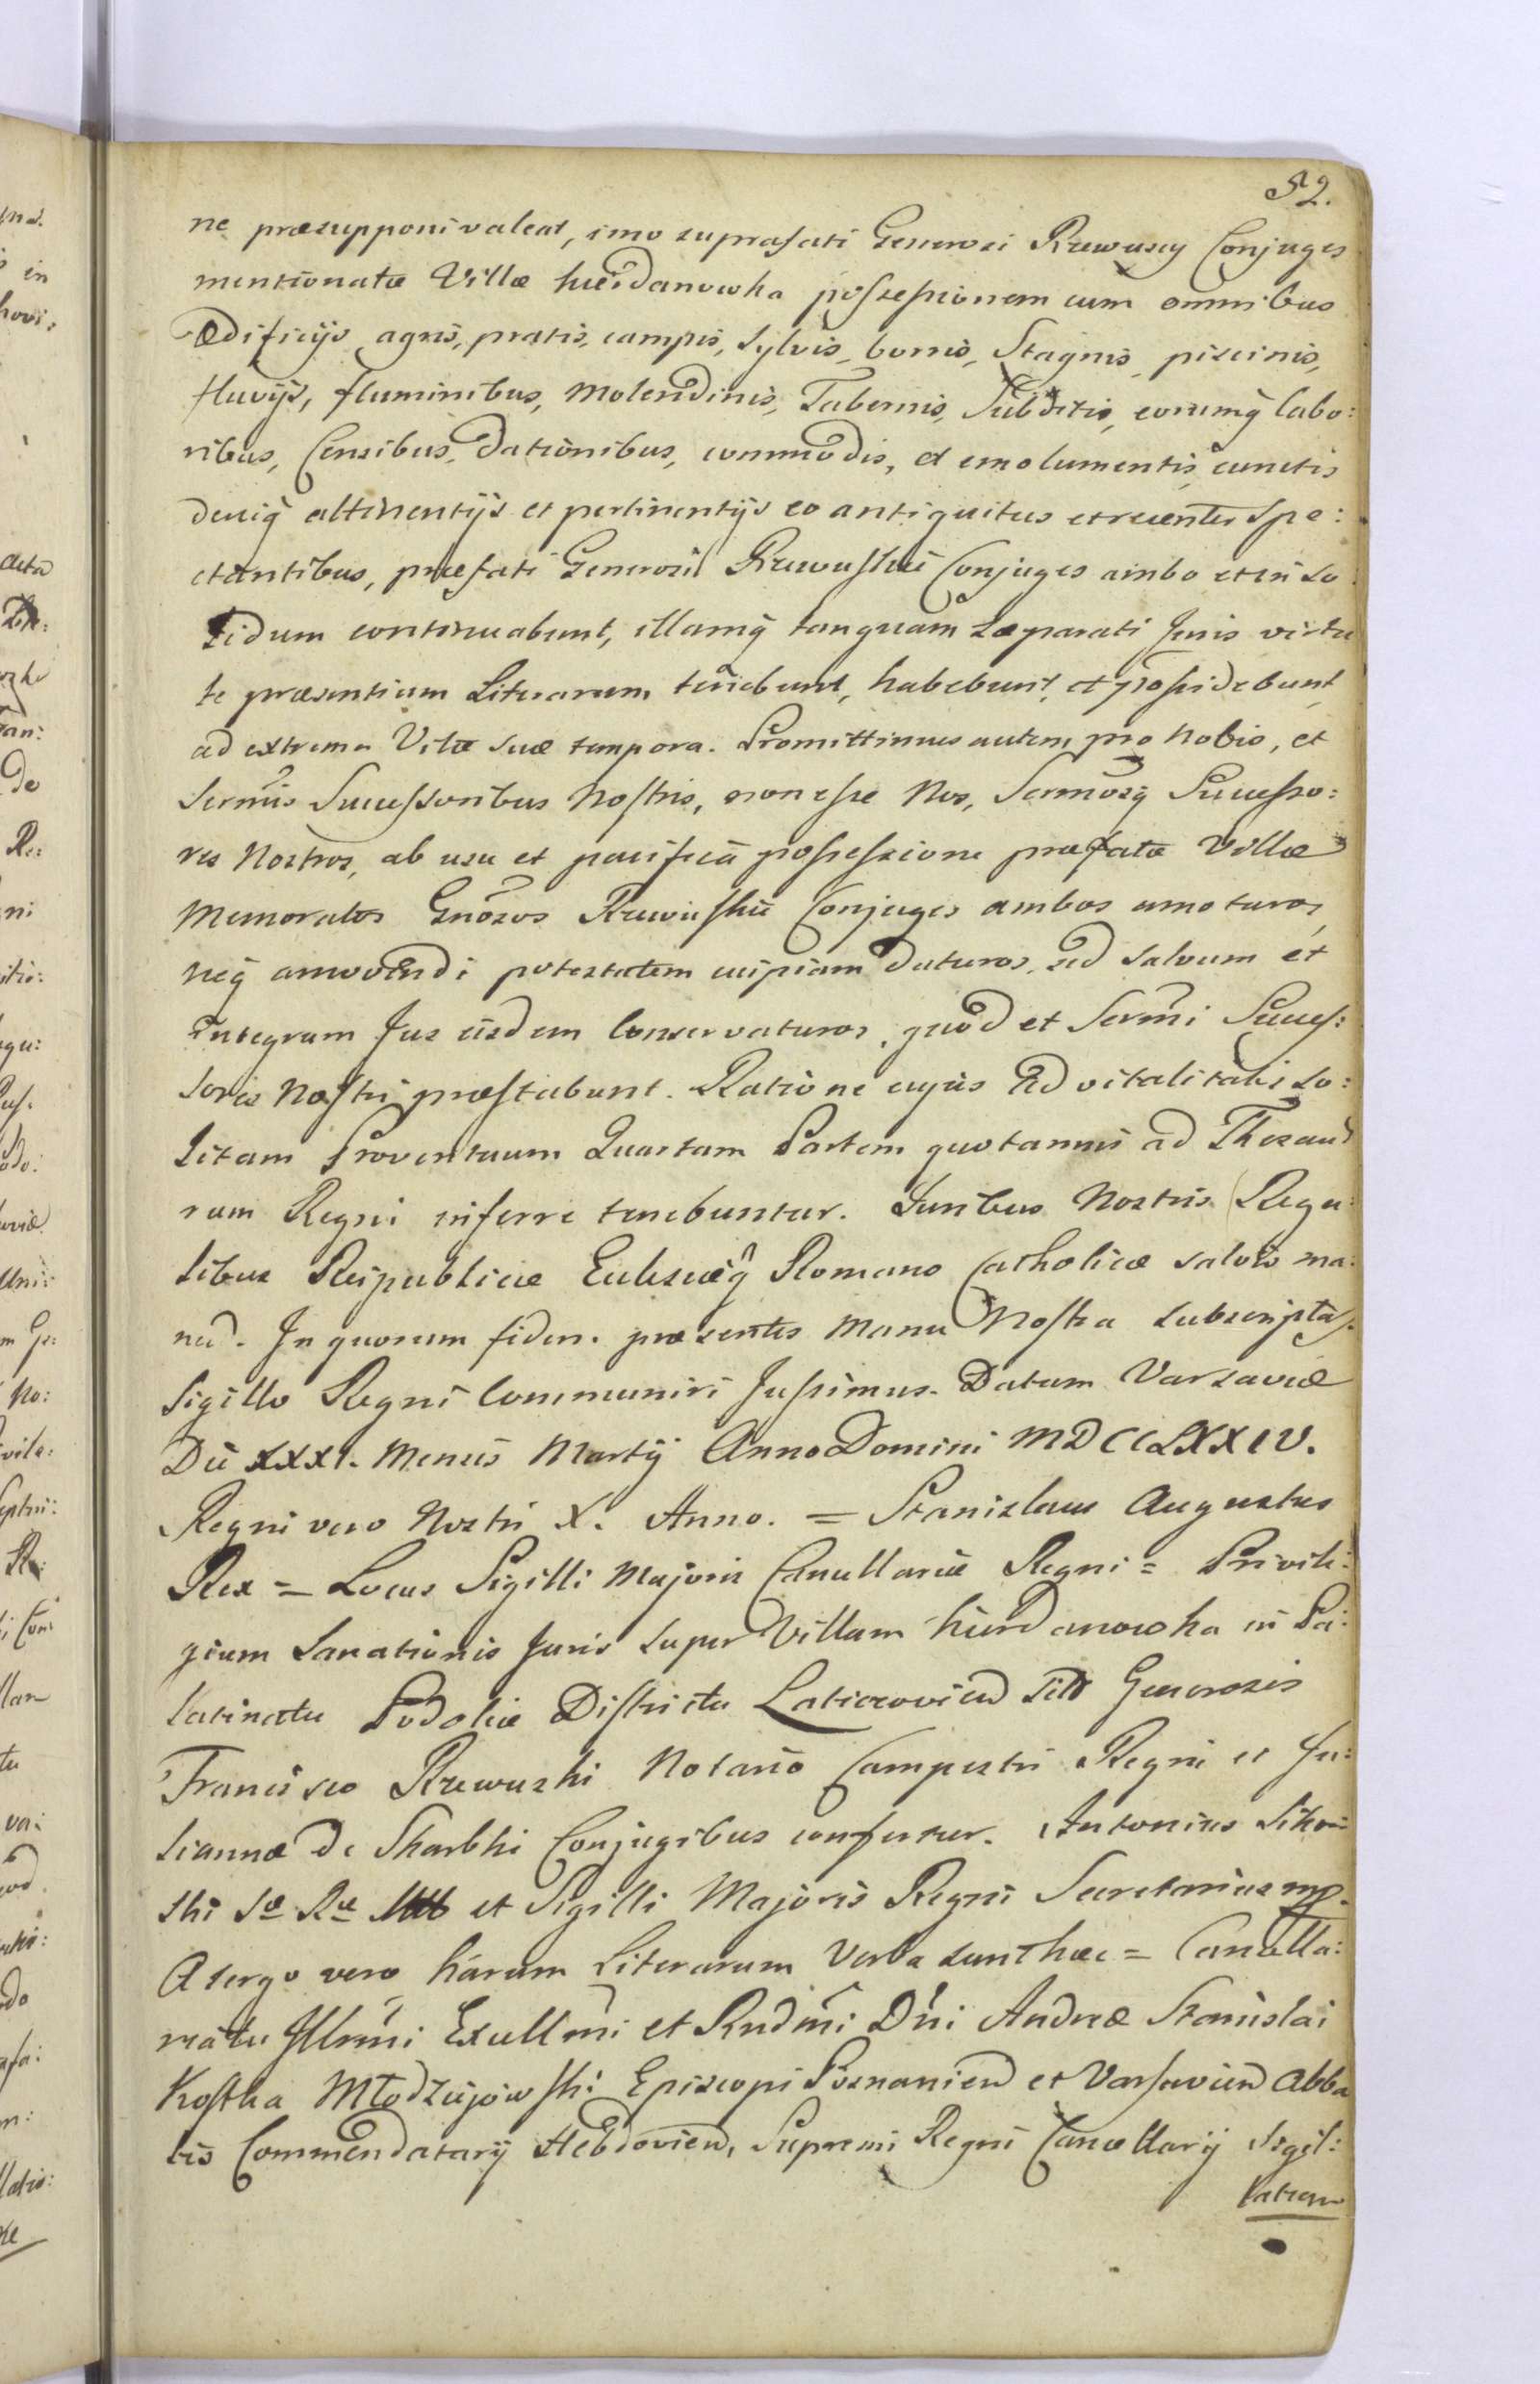 52.
ne præsupponi valeat, imo suprafati Generosi Rzewuscy Conjuges
mentionatæ Villæ hierdanowka possessionem cum omnibus
Ædificijs, agris, pratis, campis, Sylvis, borris, Stagnis, piscinis,
fluvijs, fluminibus, Molendinis, Tabernis, Subditis, eorumq̃ labo:
ribus, Censibus, Dationibus, commodis, et emolumentis, cunctis
deniq̃ attinentijs et pertinentijs eo antiquitus et recenter Spe:
ctantibus, præfati Generosi Rzewuskie Conjuges ambo et in so
lidum continuabunt, illamq̃ tanquam Læparati Juris virtu
te præsentium Literarum tenebunt, habebunt, et possidebunt,
ad extrema Vitæ suæ tempora. Promittimus autem pro Nobis, et
Serm̃is Successoribus Nostris, non esse Nos, Serm̃osq̃ Successo:
res Nostros, ab usu et pacifica possessione præfatæ Villæ
Memoratos Gnõsos Rzewuskie Conjuges ambos amoturos,
neq̃ amovendi potestatem cuipiam Daturos, sed salvum et
integrum Jus iisdem Conservaturos, quod et Serm̃i Succes:
sores Nostri præstabunt. Ratione cujus Advitalitatis so:
litam Proventuum Quartam Partem quotannis ad Thesau
rum Regni inferre tenebuntur. Juribus Nostris Rega:
libus Reipublicæ Ecclesiæq̃ Romano Catholicæ salvis ma:
nen̄. In quorum fidem præsentes Manu Nostra subscriptas
Sigillo Regni Communiri Jussimus. Datum Varsaviæ
Die XXXI. Mensis Martij Anno Domini MDCCLXXIV.
Regni vero Nostri X. Anno. = Stanislaus Augustus
Rex = Locus Sigilli Majoris Cancellariæ Regni = Privile:
gium Sanationis Juris super Villam hierdanowka in Pa:
latinatu Podoliæ Districtu Laticzovien̄ sito Generosis
Francisco Rzewuski Notario Campestri Regni et Ju:
liannæ de Skarbki Conjugibus confertur. Antonius Sikor
ski Sæ Ræ Mtt et Sigilli Majoris Regni Secretarius mp.
A tergo vero harum Literarum Verba sunt hæc = Cancella:
riatu Illmi Excellm̃i et Rndm̃i Dñi Andreæ Stanislai
Kostka Młodziejowski Episcopi Posnanien̄ et Varsavien̄ Abba
tis Commendatarij Hebdovien̄, Supremi Regni Cancellarij Sigil:
latum